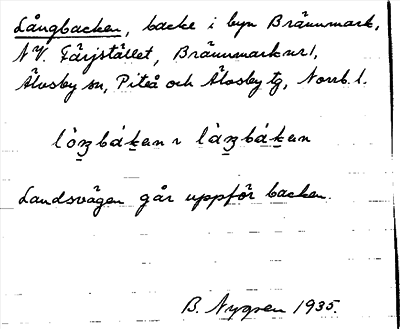 Långbacken, backe i byn Brännmark,
N.V. Färjstället, Brännmark nr 1,
Älvsby sn, Piteå och Älvsby tg, Norrb. l.
Landsvägen går uppför backen.
B. Nygren 1935.